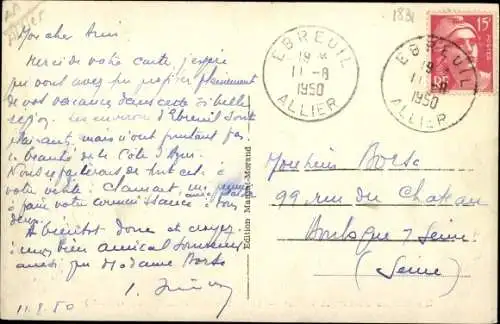 Mon cher Ami
Merci de votre carte j'espère
que vous avez pu profiter pleinement
de vos vacances dans cette si belle
région. Les environs d'Ebreuil sont
plaisants, mais n'ont pourtant pas
la beauté de la Côte d'Azur.
Nous parlerons de tout cela à
votre visite à Clamart,
à faire votre connaissance à tous
deux.
A bientôt donc et croyez
à mon bien amical souvenir
ainsi que Madame Borsc
11.8.50
Edition Margot-Morand
1831
EBREUIL
19 H
11-8
1950
ALLIER
EBREUIL
19
11-8
1950
ALLIER
15F
RF
POSTES
Monsieur Borsc
99 rue du Chateau
Boulogne s/ Seine
(Seine)